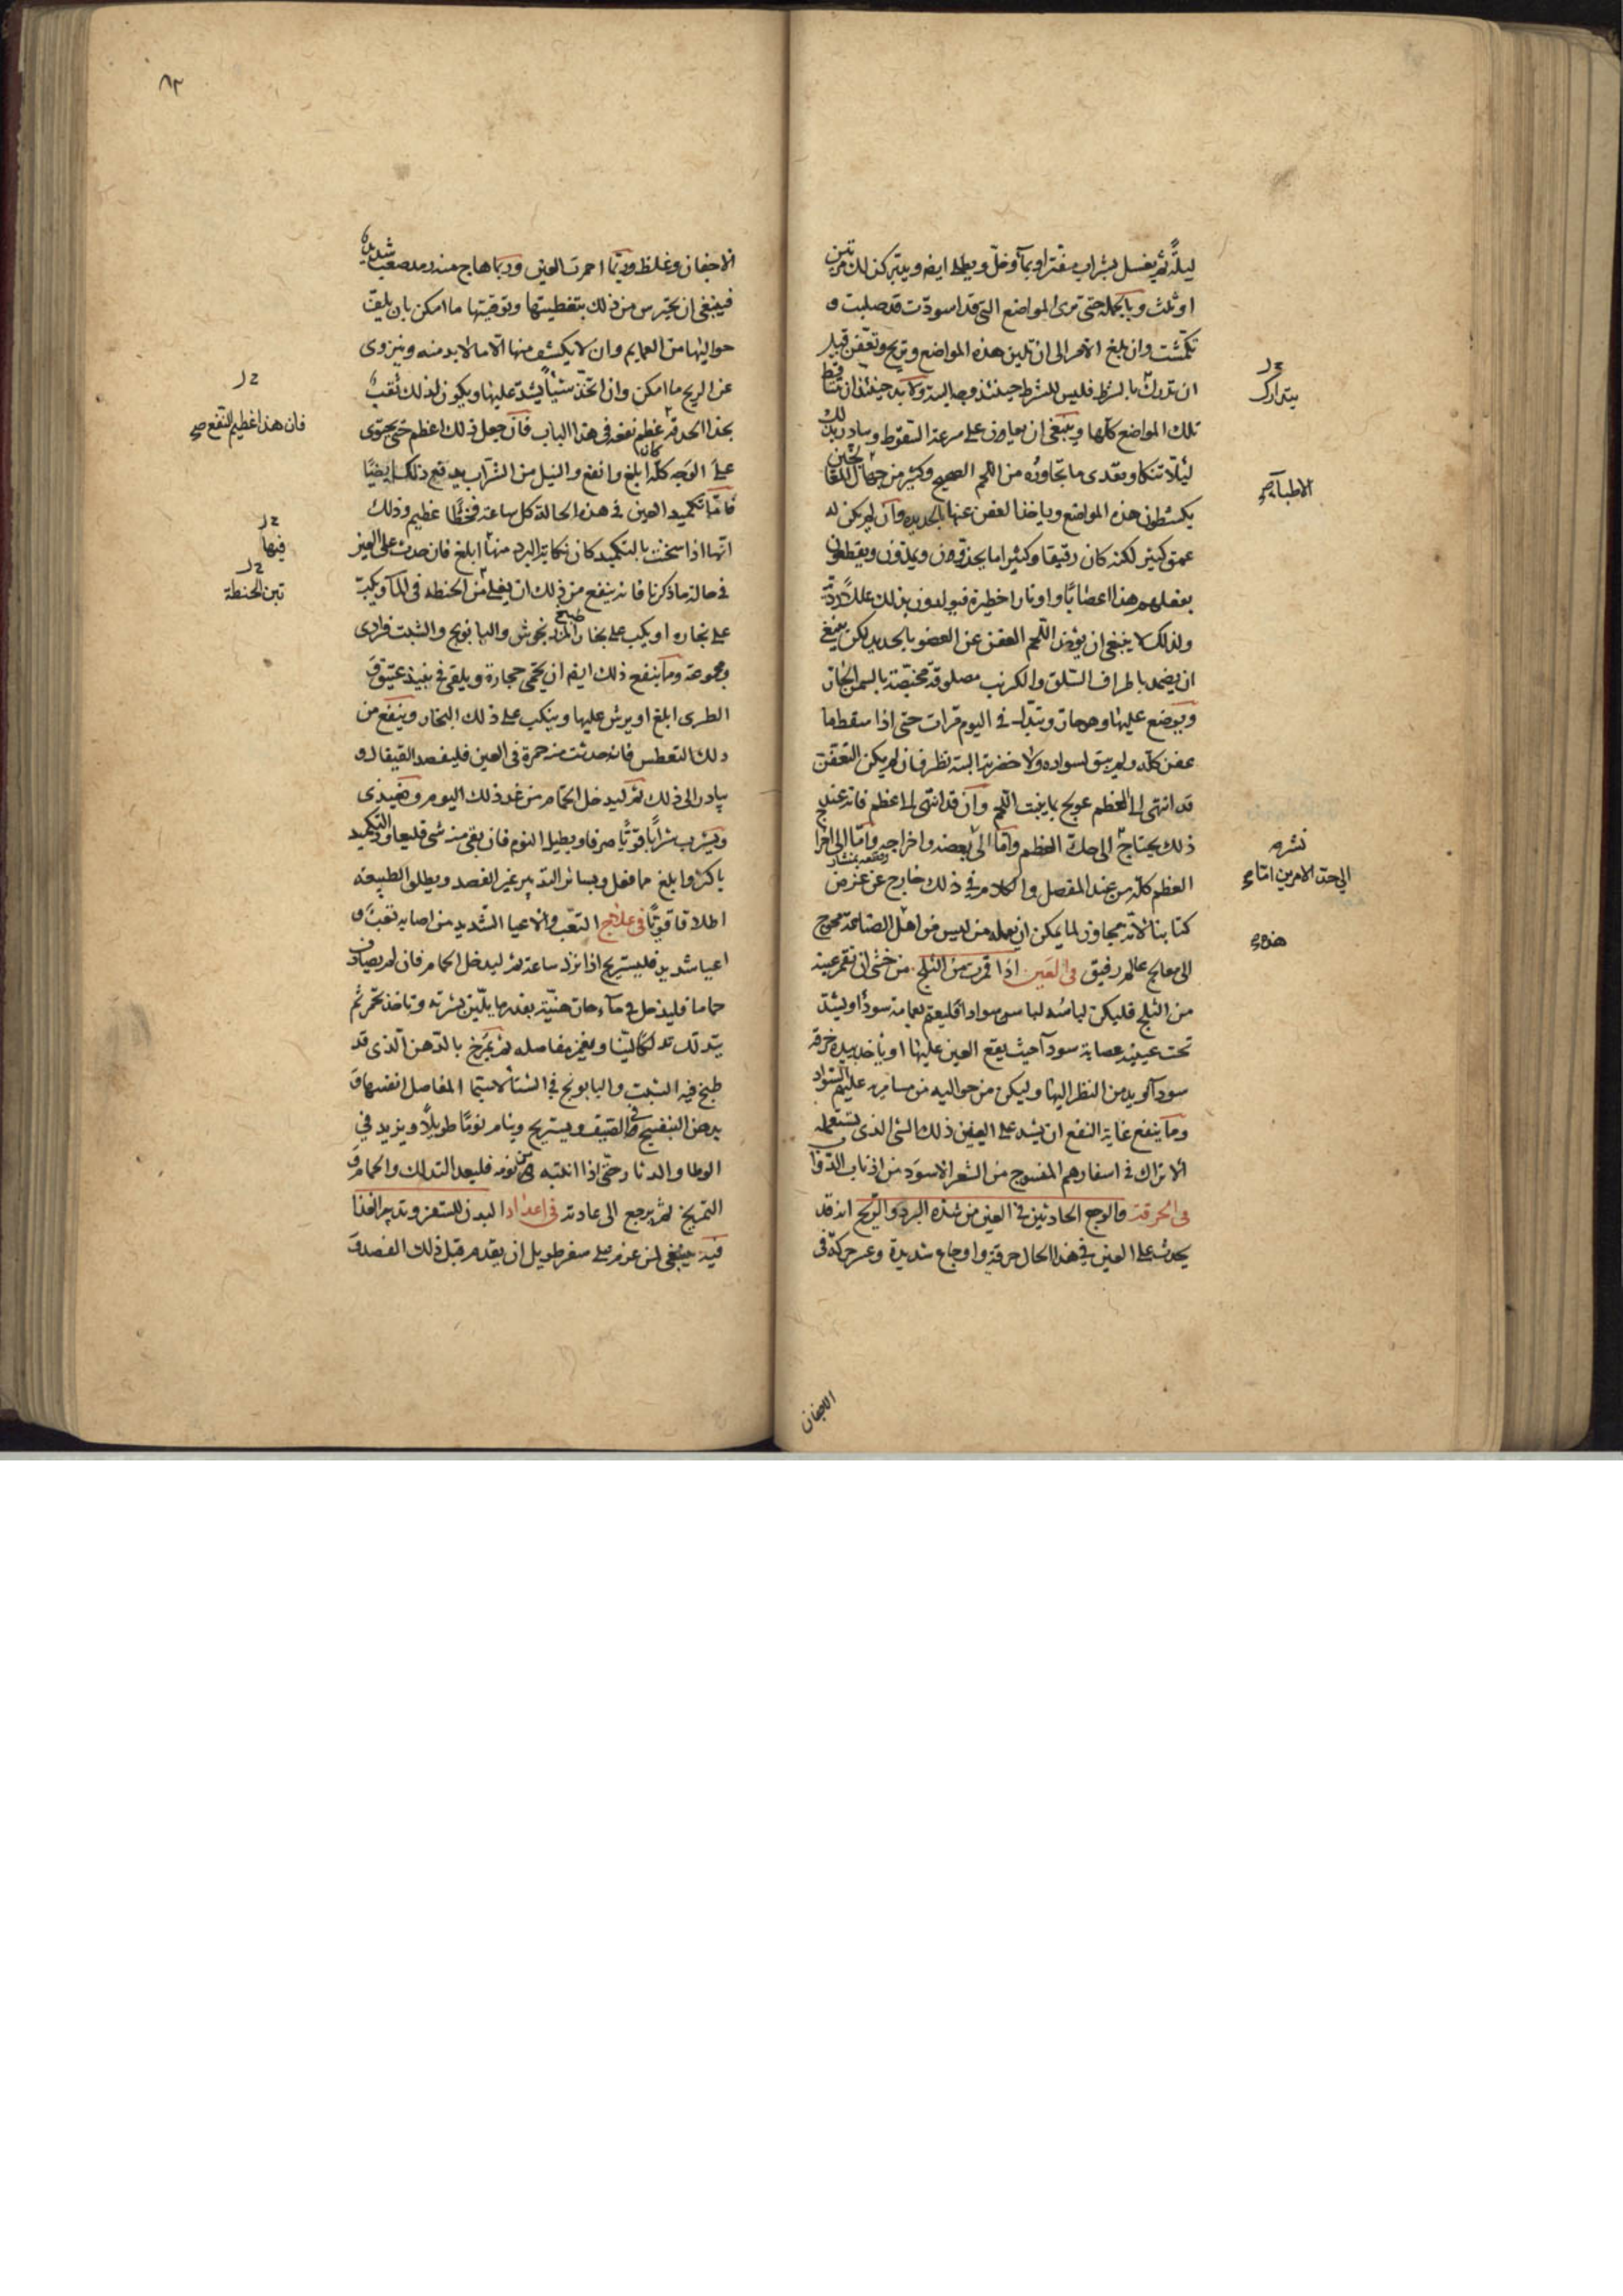 ليلة ثم يغسل بشراب مفتر او بماء وخل ويطلى ايضا ويترك كذلك مرتين
او ثلث وبالجملة حتى ترى المواضع التى قد اسودت قد صلبت و
تكمشت وان بلغ الامر الى ان تلين هذه المواضع وتعفن قبل
ان تدرك بالشرط فليس للشرط حينئذ وجه البتة ولا بد حينئذ ان تتساقط
تلك المواضع كلها وينبغى ان يعاون على سرعة السقوط ويبادر بذلك
لئلا تتاكل ويعدى ما تجاوره من اللحم الصحيح وكثير من جهال
يكشطون هذه المواضع وياخذ العفن عنها بالحديد وان لم يكن له
عمق كثير لكنه كان رقيقا وكثيرا ما يحذقون ويقطعون
بفعلهم هذا اعصابا واوتارا خطيرة فيولدون بذلك عللا ردية
ولذلك لا ينبغى ان يؤخذ اللحم العفن عن العضو بالحديد لكن ينبغى
ان يضمد باطراف السلق والكرنب مصلوقة مخبصة بالسمن الحار
ويوضع عليها وهى حارة وتبدل فى اليوم مرات حتى اذا سقط ما
عفن كله ولم يبق لسواده ولا خضرته البتة نظر فان لم يكن التعفن
قد انتهى الى العظم عولج بما ينبت اللحم وان قد انتهى الى العظم فانه عند
ذلك يحتاج الى حك العظم واما الى بعضه واخراجه واما الى اخراج
العظم كله من عند المفصل والكلام فى ذلك خارج عن غرض
كتابنا لانه مجاوز لما يمكن ان يعمله من ليس من اهل الصناعة محوج
الى معالج عالم رفيق فى العين اذا قمرت من الثلج من خشى ان تقمر عينه
من الثلج فليكن لباسه لباس سوادا فليعتم بعمامة سوداء ويشد
تحت عينيه عصابة سوداء حيث يقع العين عليها او ياخذ بيده خرقة
سوداء ويدمن النظر اليها وليكن من حواليه من مسامريه عليهم السواد
ومما ينفع غاية النفع ان يشد على العينين ذلك الشى الذى يستعمله
الاتراك فى اسفارهم المنسوج من الشعر الاسود من اذناب الدواب
فى الحرقة والوجع الحادثين فى العين من شدة البرد والريح انه قد
يحدث على العين فى هذا الحال حرقة واوجاع شديدة وعسر حركة فى
الاجفان
يتدارك
الاطباء صح
نشره
الى احد الامرين اما صح
هذه
٨٢
الاجفان وغلظ وربما احمرت العين وربما هاج منه رمد صعب شديد
فينبغى ان يحترس من ذلك بتغطيتها وتوقيتها ما امكن بان يلف
حواليها من العمايم وان لا يكشف منها الا ما لا بد منه وينزوى
عن الريح ما امكن وان اتخذ شيئا يشد عليها ويكون لذلك ثقب
بحذا الحدقة عظم نفعه فى هذا الباب فان جعل ذلك اعظم حتى يحتوى
على الوجه كله كان ابلغ وانفع والنيل من الشراب يدفع ذلك ايضا
فاما تكميد العين فى هذه الحالة كل ساعة فخطأ عظيم وذلك
انها اذا سخنت بالتكميد كان نكاية البرد منها ابلغ فان حدث على العين
فى حالة ما ذكرنا فانه ينفع من ذلك ان يغلى من الحنطة فى الماء ويكب
على بخاره او يكب على بخار طبيخ المرزنجوش والبابونج والشبت فرادى
ومجموعة ومما ينفع ذلك ايضا ان يحمى حجارة ويلقى فى نبيذ عتيق و
الطرى ابلغ او يرش عليها وينكب على ذلك البخار وينفع من
ذلك التعطس فان حدثت منه حمرة فى العين فليفصد القيفال و
يبادر الى ذلك ثم ليدخل الحمام من غد ذلك اليوم ويغتذى
ويشرب شرابا قويا صرفا ويطيل النوم فان بقى منه شى فليعاود التكميد
باكثر وابلغ مما فعل وبسائر التدبير غير الفصد ويطلق الطبيعة
اطلاقا قويا فى علاج التعب والاعيا الشديد من اصابه تعب و
اعيا شديد فليستريح اذا نزل ساعة ثم ليدخل الحمام فان لم يصادف
حماما فليدخل فى ماء حار هنية بقدر ما يلين بشرته وتاخذ تحمر ثم
يتدلك تدلكا لينا ويغمز مفاصله ثم يمرخ بالدهن الذى قد
طبخ فيه الشبت والبابونج فى الشتا لاسيما المفاصل انفسها و
بدهن البنفسج فى الصيف ويستريح وينام نوما طويلا ويزيد فى
الوطا والدثار حتى اذا انتبه من نومه فليعد التدلك والحمام و
التمريخ ثم يرجع الى عادته فى اعداد البدن للسفر وتدبير الغذا
فيه ينبغى لمن عزم على سفر طويل ان يقدم قبل ذلك الفصد و
فان هذا عظيم النفع صح
فيها
تبن الحنطة